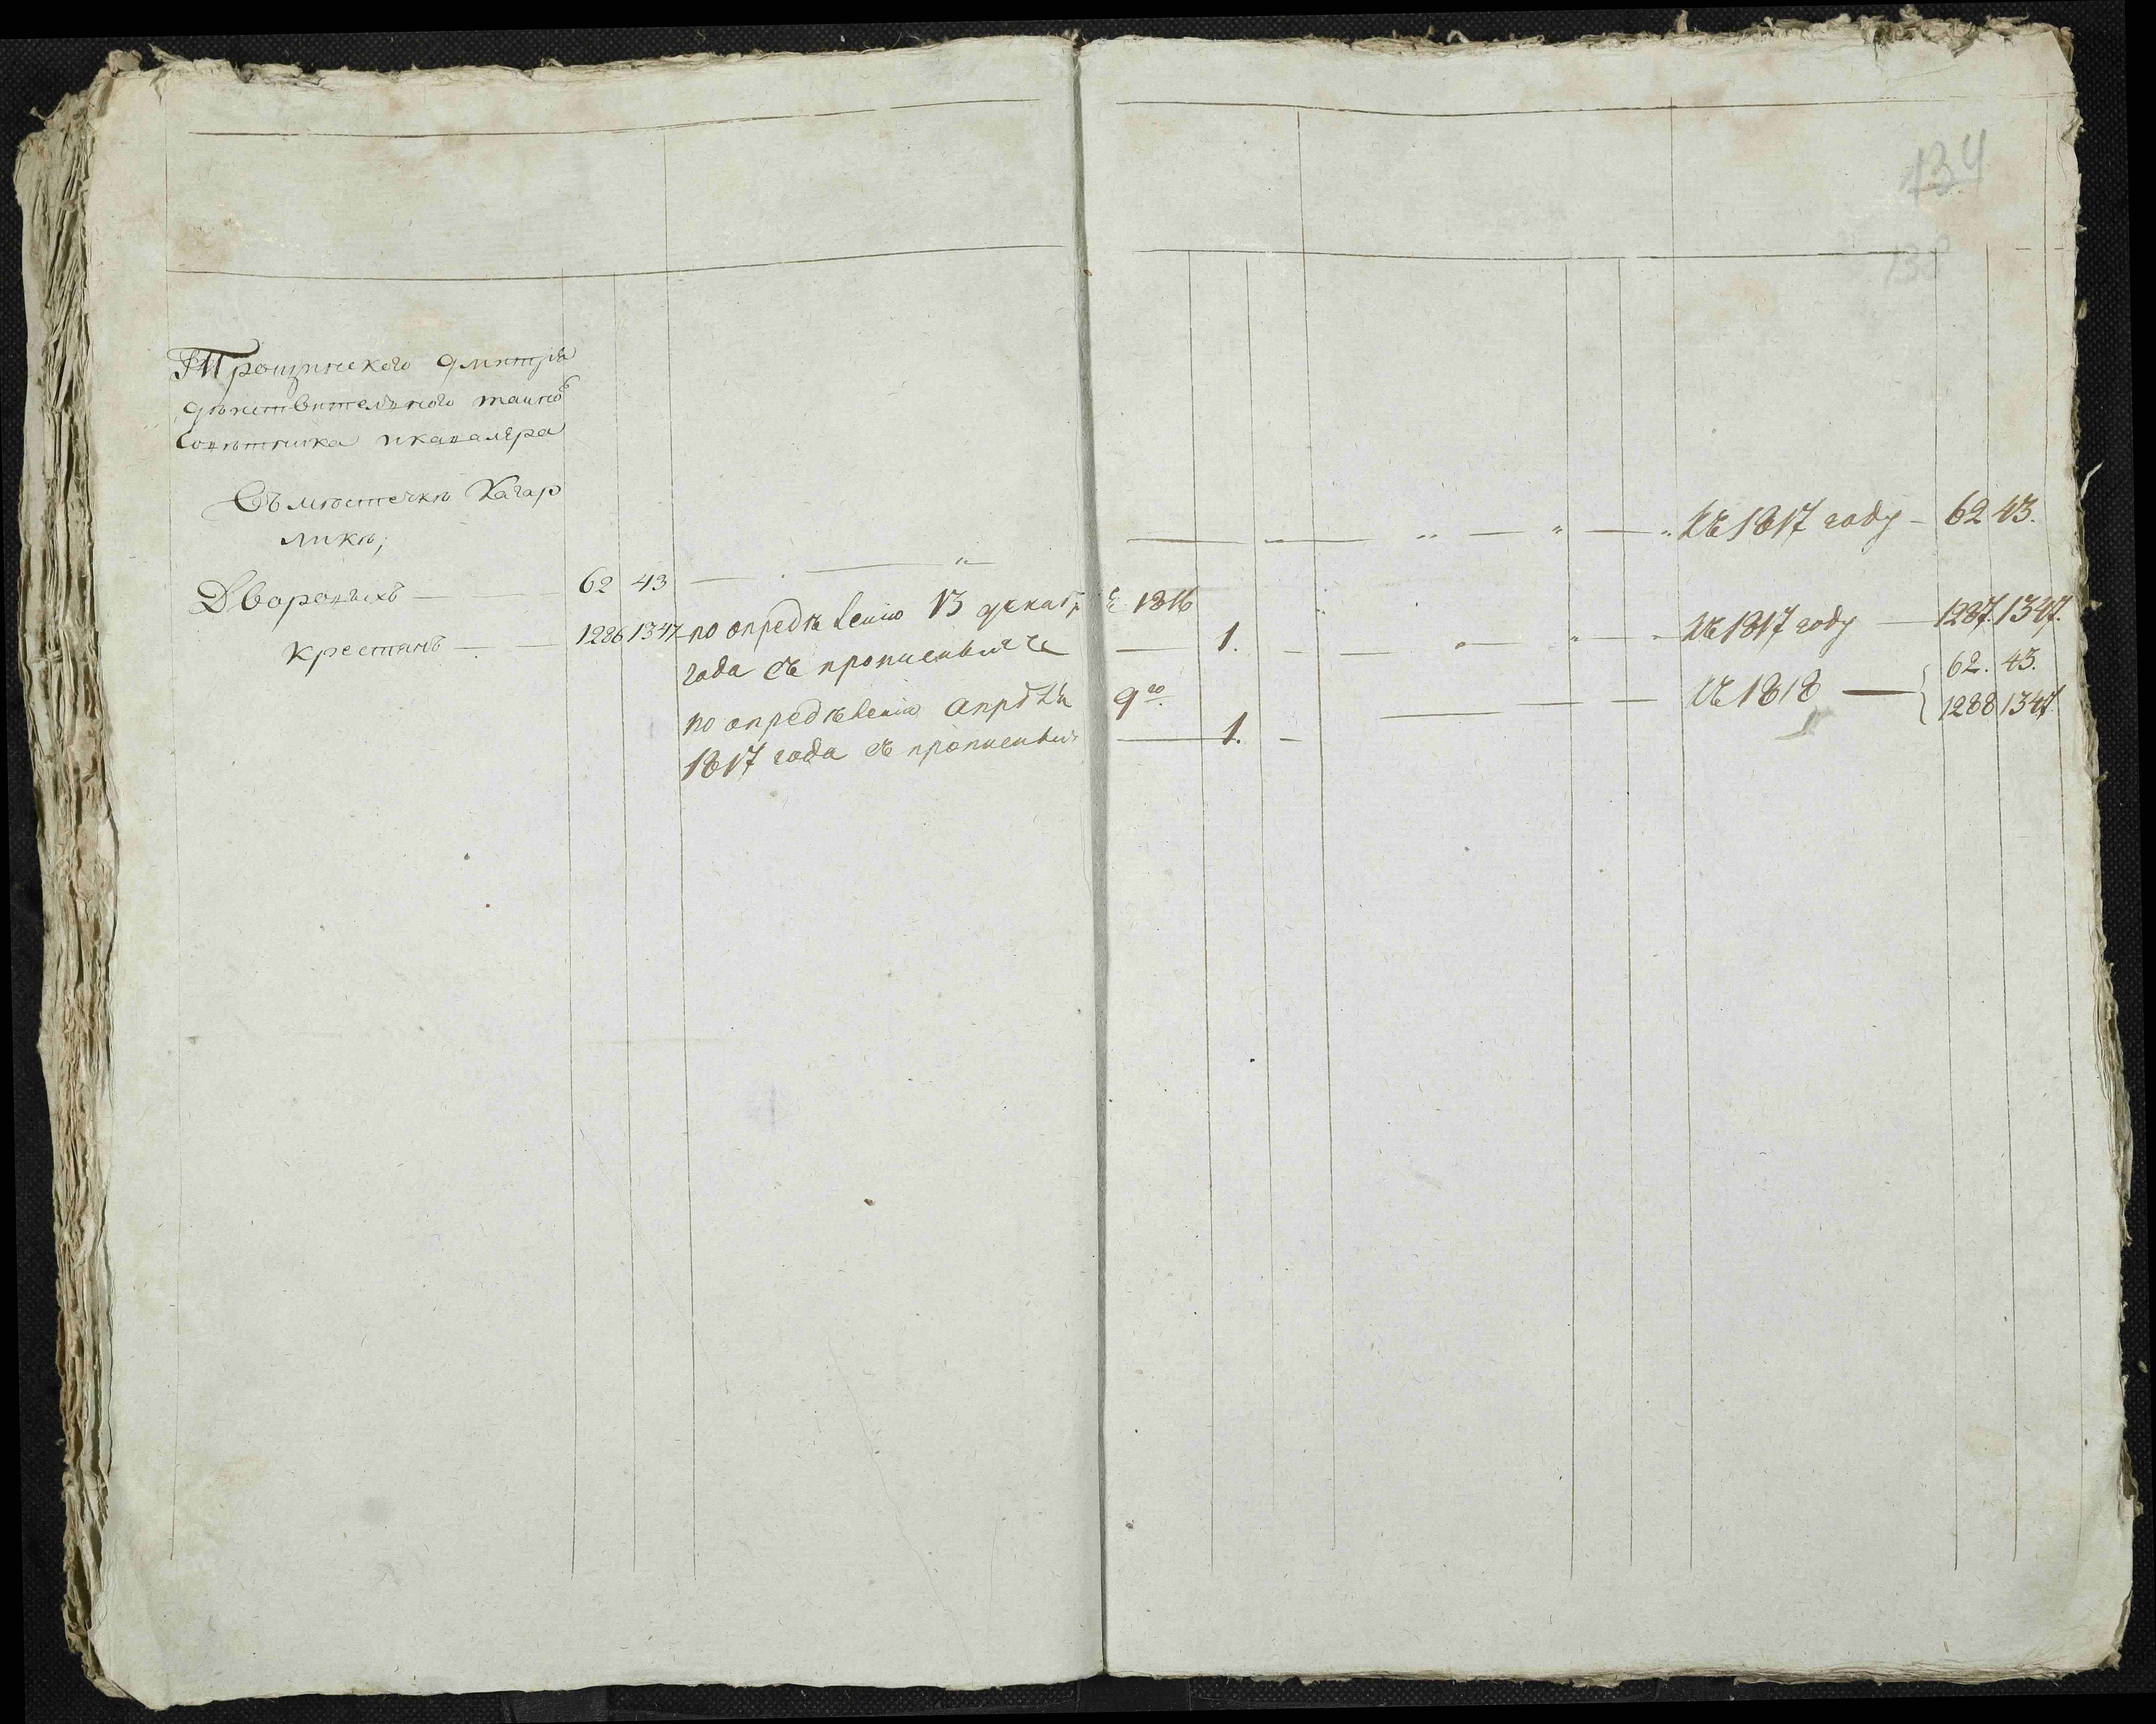 134
138
Трощинского Дмитрія
действительного тайно
Советника и кавалера
Въ местечкѣ Кагар
ликѣ;
Дворовыхъ — 62 43 — Къ 1817 году — 62 43.
Крестянъ — 1286 1347 по определению 13 декабря 1816
года съ прописныхъ — 1. — Къ 1817 году — 1287. 1347.
по определению Апрѣля 9го
1817 года съ прописныхъ — 1. — Къ 1818 — 62. 43.
1288 1347.